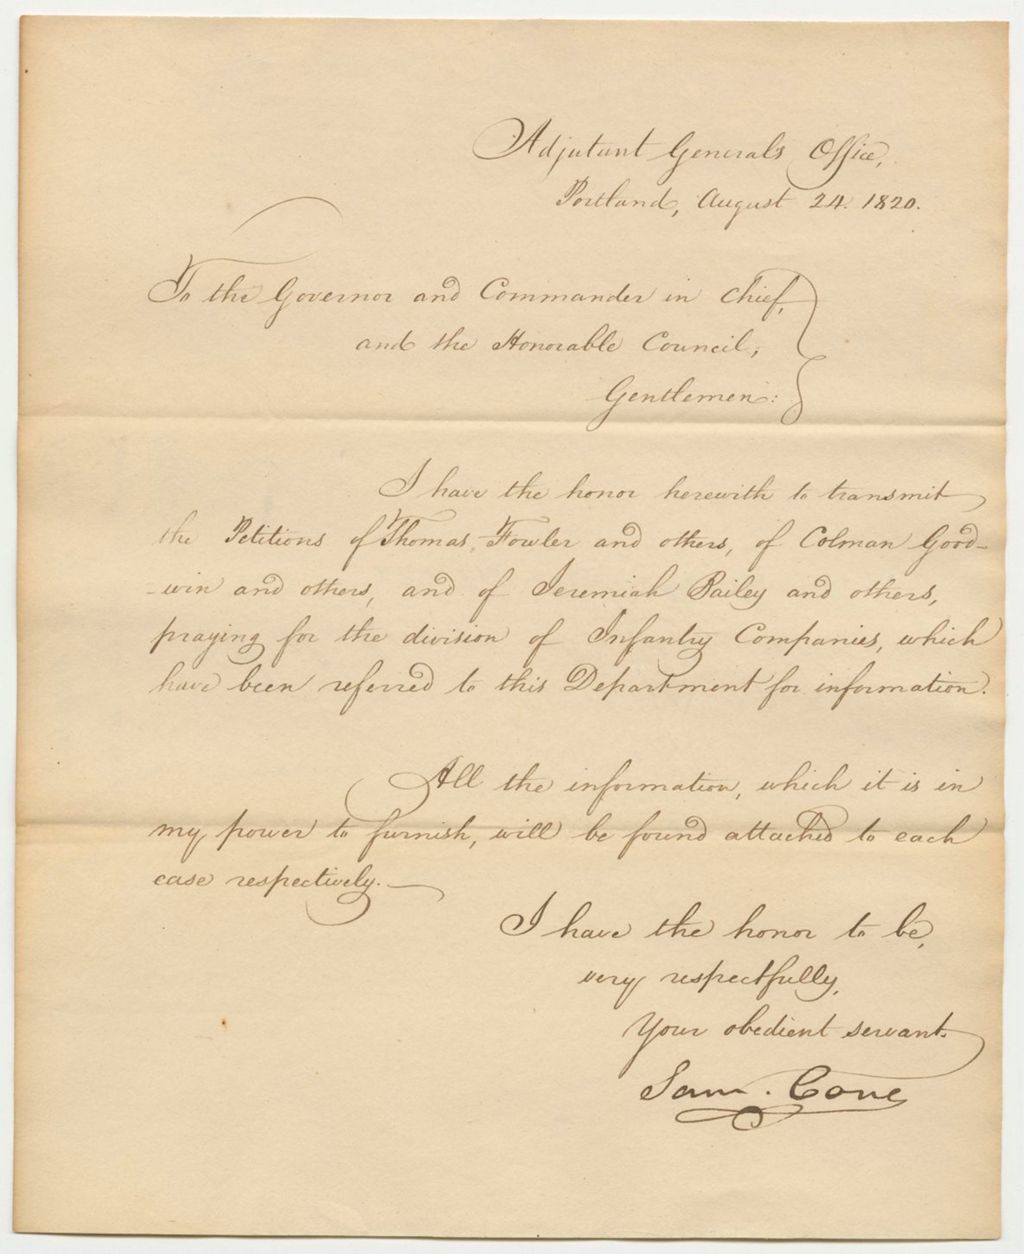 Adjutant Generals Office,
Portland, August 24. 1820.
To the Governor and Commander in Chief,
and the Honorable Council,
Gentlemen:
I have the honor herewith to transmit
the Petitions of Thomas Fowler and others, of Colman Good-
-win and others, and of Jeremiah Bailey and others,
praying for the division of Infantry Companies, which
have been referred to this Department for information.
All the information, which it is in
my power to furnish, will be found attached to each
case respectively.—
I have the honor to be,
very respectfully,
Your obedient servant.
Sam. Cony